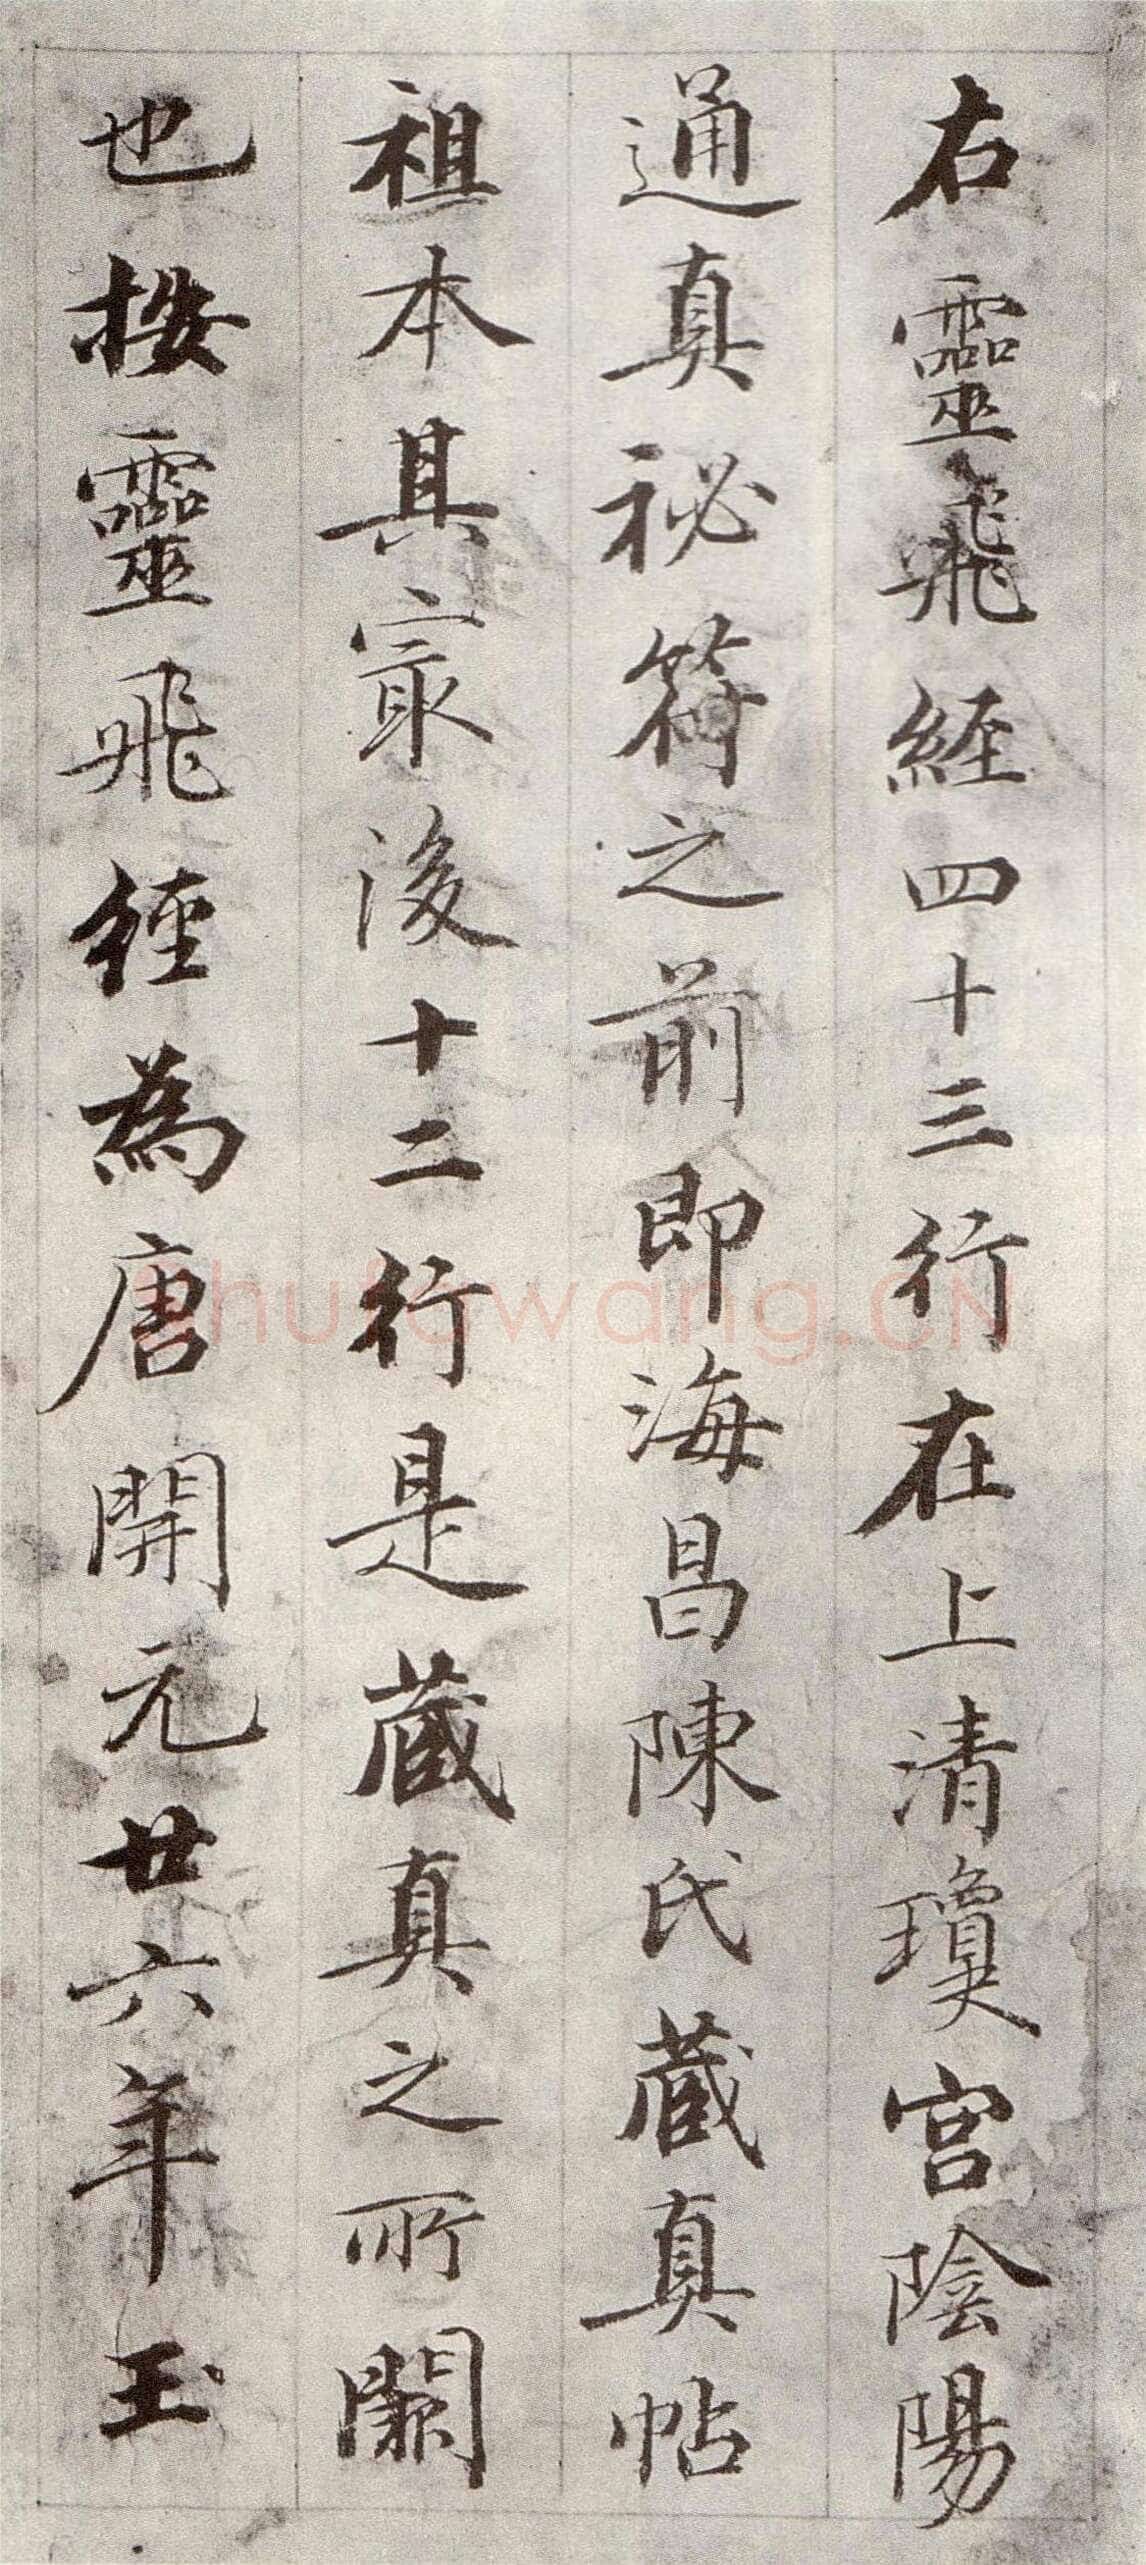 右靈飛經四十三行在上清瓊宮陰陽
通真祕符之前即海昌陳氏藏真帖
祖本其寂後十二行是藏真之所闕
也按靈飛經為唐開元廿六年玉
shufawang.CN